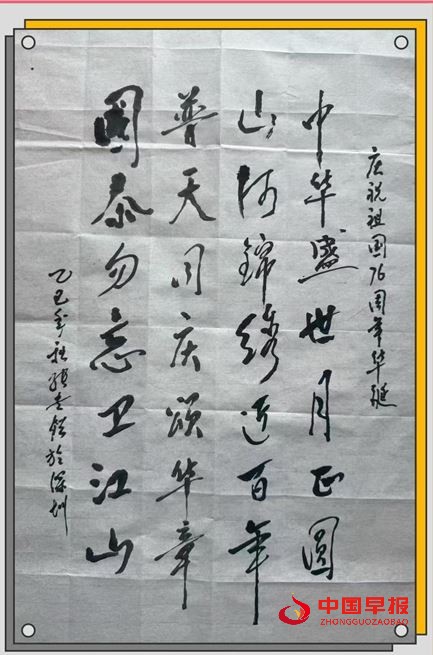 庆祝祖国76周年华诞
中华盛世月正圆
山河锦绣近百年
普天同庆颂华章
国泰勿忘卫江山
乙巳年秋 於深圳
中国早报
ZHONGGUOZAOBAO